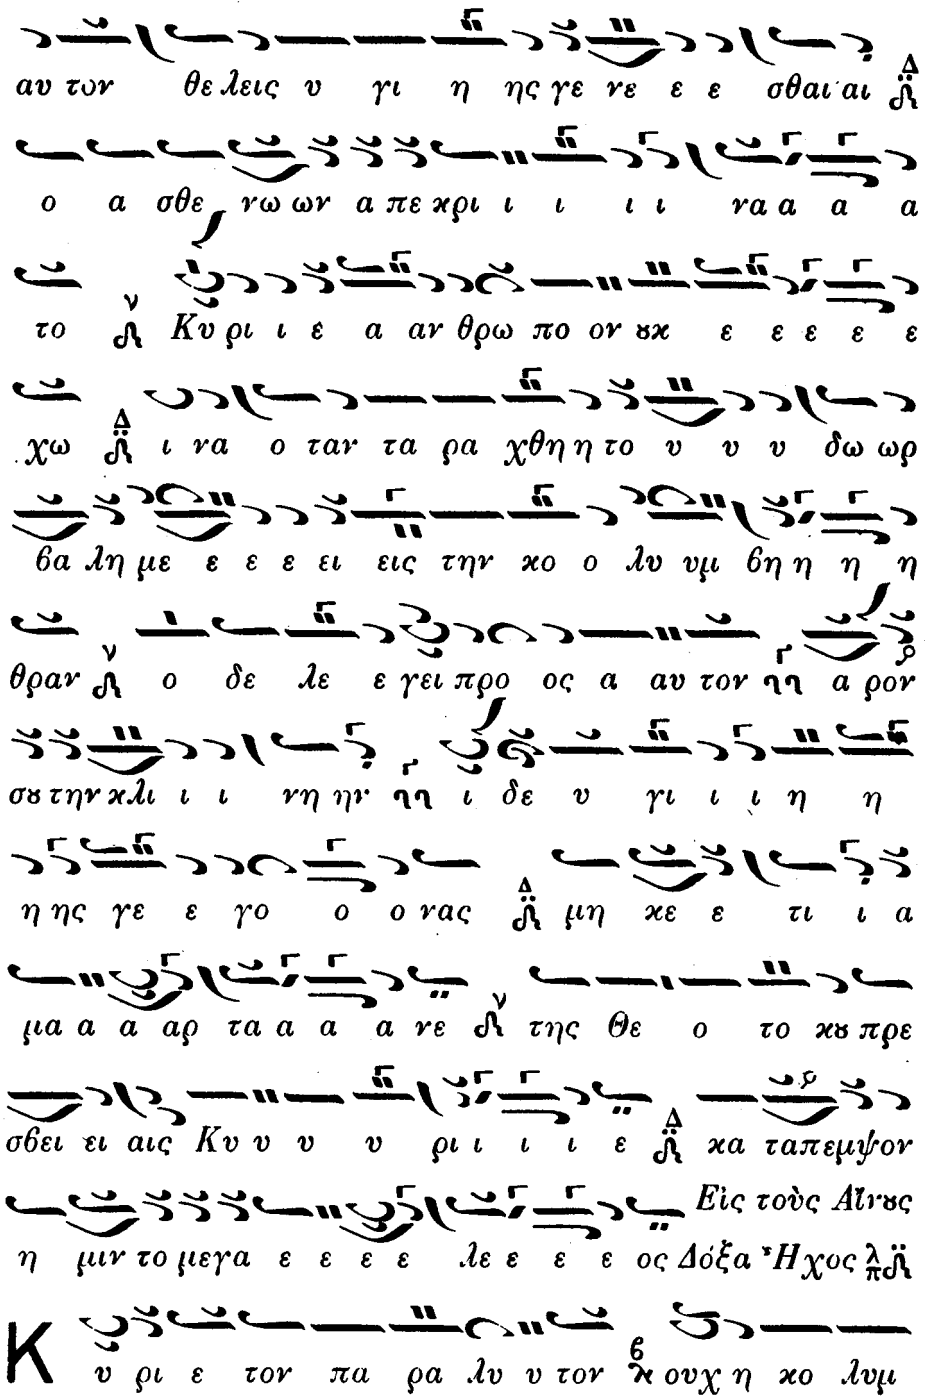 αυ τον θε λεις υ γι η ης γε νε ε ε σθαι αι Δ
ο α σθε νω ων α πε κρι ι ι ι ι να α α α
το ν Κυ ρι ι ε α αν θρω πο ον ȣκ ε ε ε ε ε
χω Δ ι να ο ταν τα ρα χθη η το υ υ υ δω ωρ
βα λη με ε ε ε ει εις την κο ο λυ υμ βη η η η
θραν ν ο δε λε ε γει προ ος α αυ τον α ρον
σȣ την κλι ι ι νη ην ι δε υ γι ι ι η η
η ης γε ε γο ο ο νας Δ μη κε ε τι ι α
μα α α αρ τα α α α νε ν της Θε ο το κȣ πρε
σβει ει αις Κυ υ υ υ ρι ι ι ι ε Δ κα ταπεμψον
Εἰς τοὺς Αἴνȣς
η μιν το μεγα ε ε ε ε λε ε ε ε ος Δόξα Ἦχος λ π
Κ υ ρι ε τον πα ρα λυ υ τον ουχ η κο λυμ